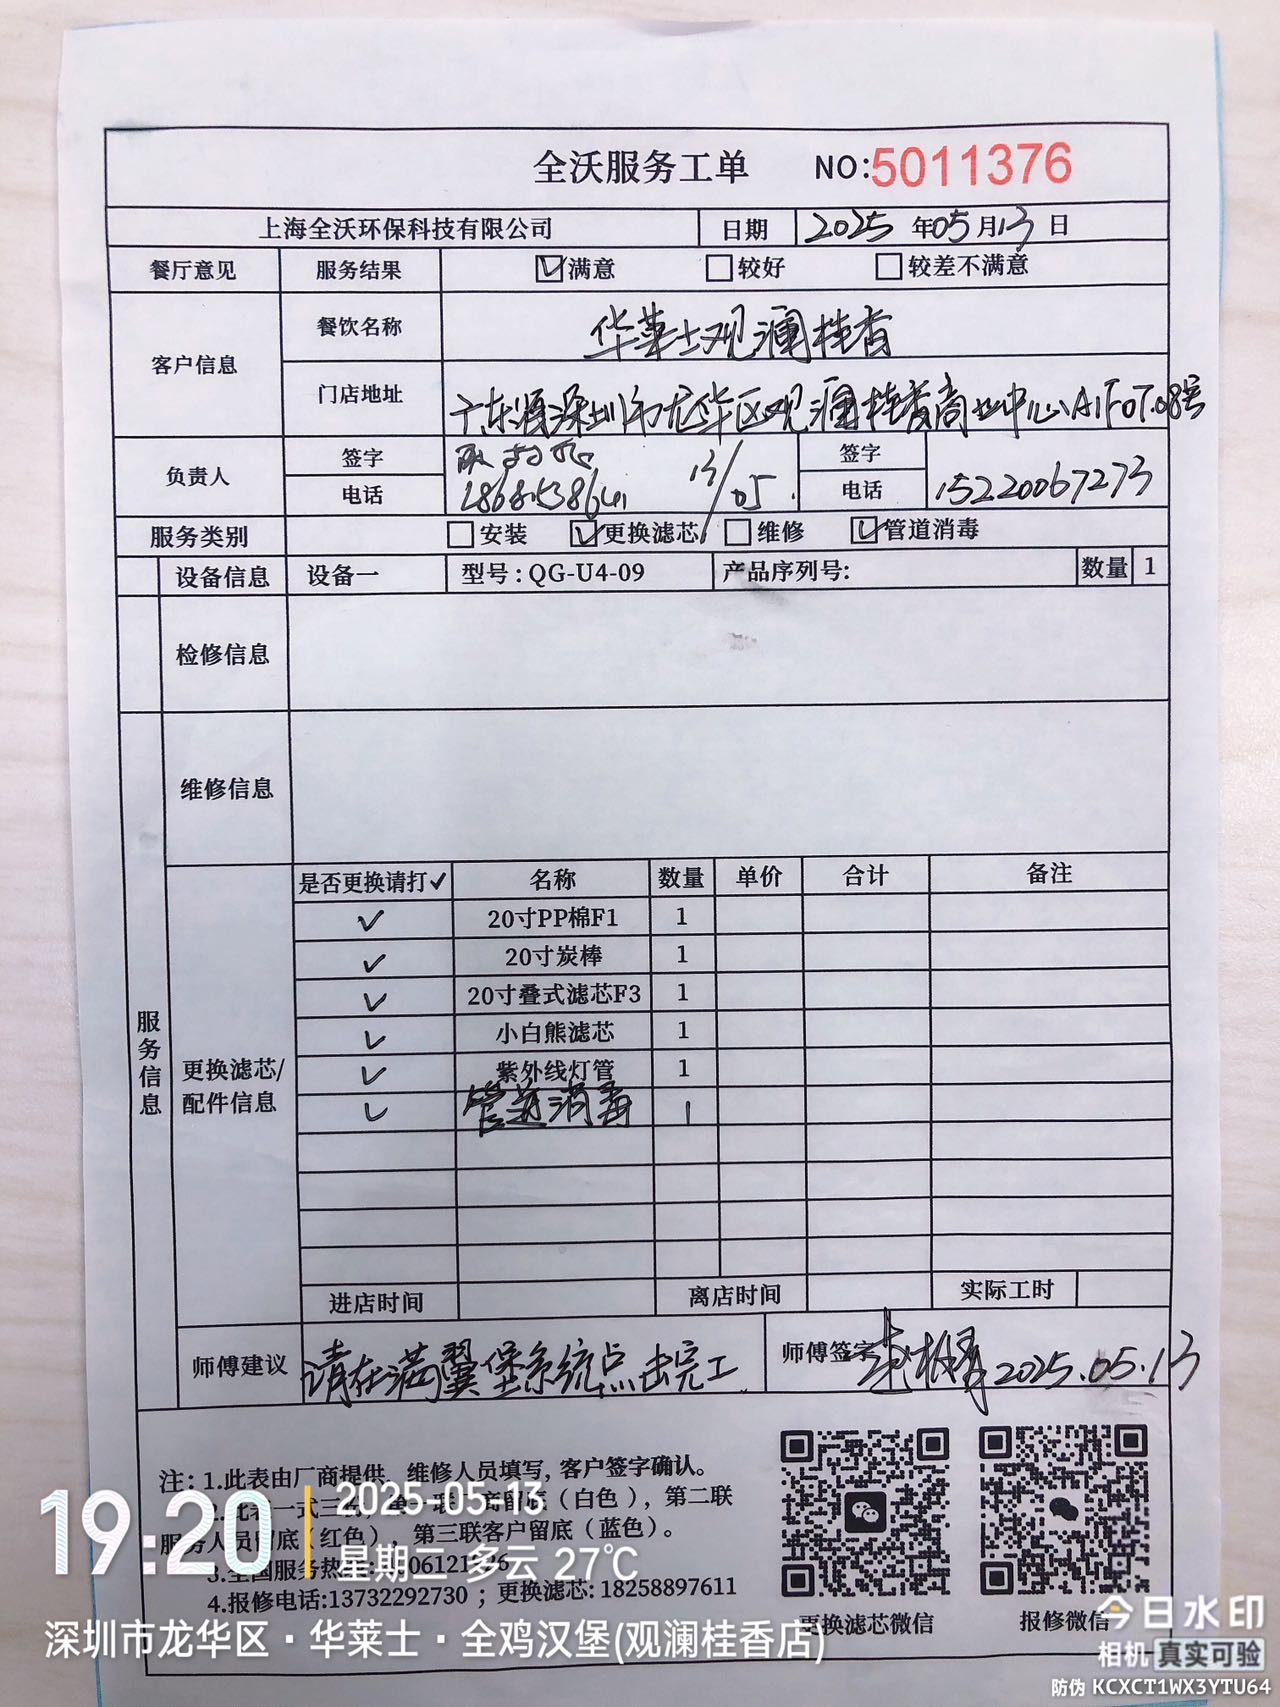 全沃服务工单 NO:5011376
上海全沃环保科技有限公司 日期 2025年05月13日
餐厅意见 服务结果 ☑满意 □较好 □较差不满意
客户信息 餐饮名称 华莱士观澜桂香
门店地址 广东省深圳市龙华区观澜桂香商业中心A1F07.08号
负责人 签字 13/05. 签字
电话 电话 15220067273
服务类别 □安装 ☑更换滤芯 □维修 ☑管道消毒
设备信息 设备一 型号:QG-U4-09 产品序列号: 数量 1
检修信息
维修信息
服务信息
更换滤芯/配件信息
是否更换请打✓ 名称 数量 单价 合计 备注
✓ 20寸PP棉F1 1
✓ 20寸炭棒 1
✓ 20寸叠式滤芯F3 1
✓ 小白熊滤芯 1
✓ 紫外线灯管 1
✓ 管道消毒 1
进店时间 离店时间 实际工时
师傅建议 请在满翼堡系统点击完工 师傅签字 2025.05.13
注:1.此表由厂商提供,维修人员填写,客户签字确认。
2.此表一式三 留底(白色),第二联
服务人员留底(红色),第三联客户留底(蓝色)。
3.全国服务热
4.报修电话:13732292730;更换滤芯:18258897611
更换滤芯微信 报修微信
19:20 2025-05-13
星期二 多云 27℃
深圳市龙华区·华莱士·全鸡汉堡(观澜桂香店)
今日水印
相机 真实可验
防伪 KCXCT1WX3YTU64